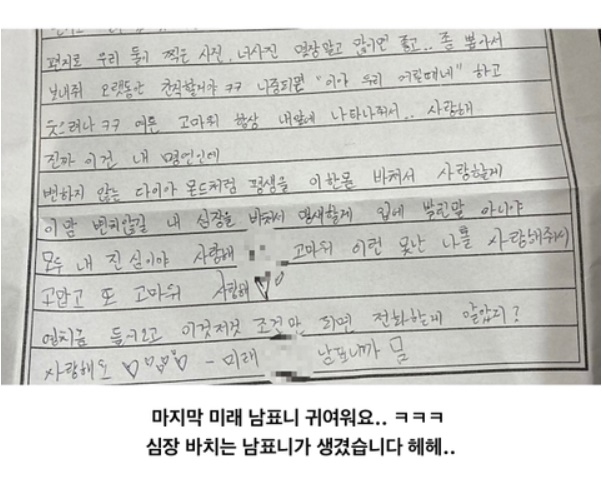 편지로 우리 둘이 찍은 사진, 너사진 몇장말고 많기면 좋고.. 좀 뽑아서
보내줘 오랫동안 간직할거야 ㅋㅋ 나중되면 "이야 우리 어릴때네" 하고
웃으려나 ㅋㅋ 여튼 고마워 항상 내앞에 나타나줘서.. 사랑해
진짜 이건 내 명언인데
변하지 않는 다이아 몬드처럼 평생을 이한몸 바쳐서 사랑할게
이맘 변치않길 내 심장을 바쳐서 맹세할게 입에 발린말 아니야
모두 내 진심이야 사랑해 고마워 이런 못난 나를 사랑해줘서
고맙고 또 고마워 사랑해♡♡
들어오고 이것저것 조건만 되면 전화할게 알았지?
사랑해도 ♡♡♡♡ - 미래 남표니가 몸
마지막 미래 남표니 귀여워요.. ㅋㅋㅋ
심장 바치는 남표니가 생겼습니다 헤헤..